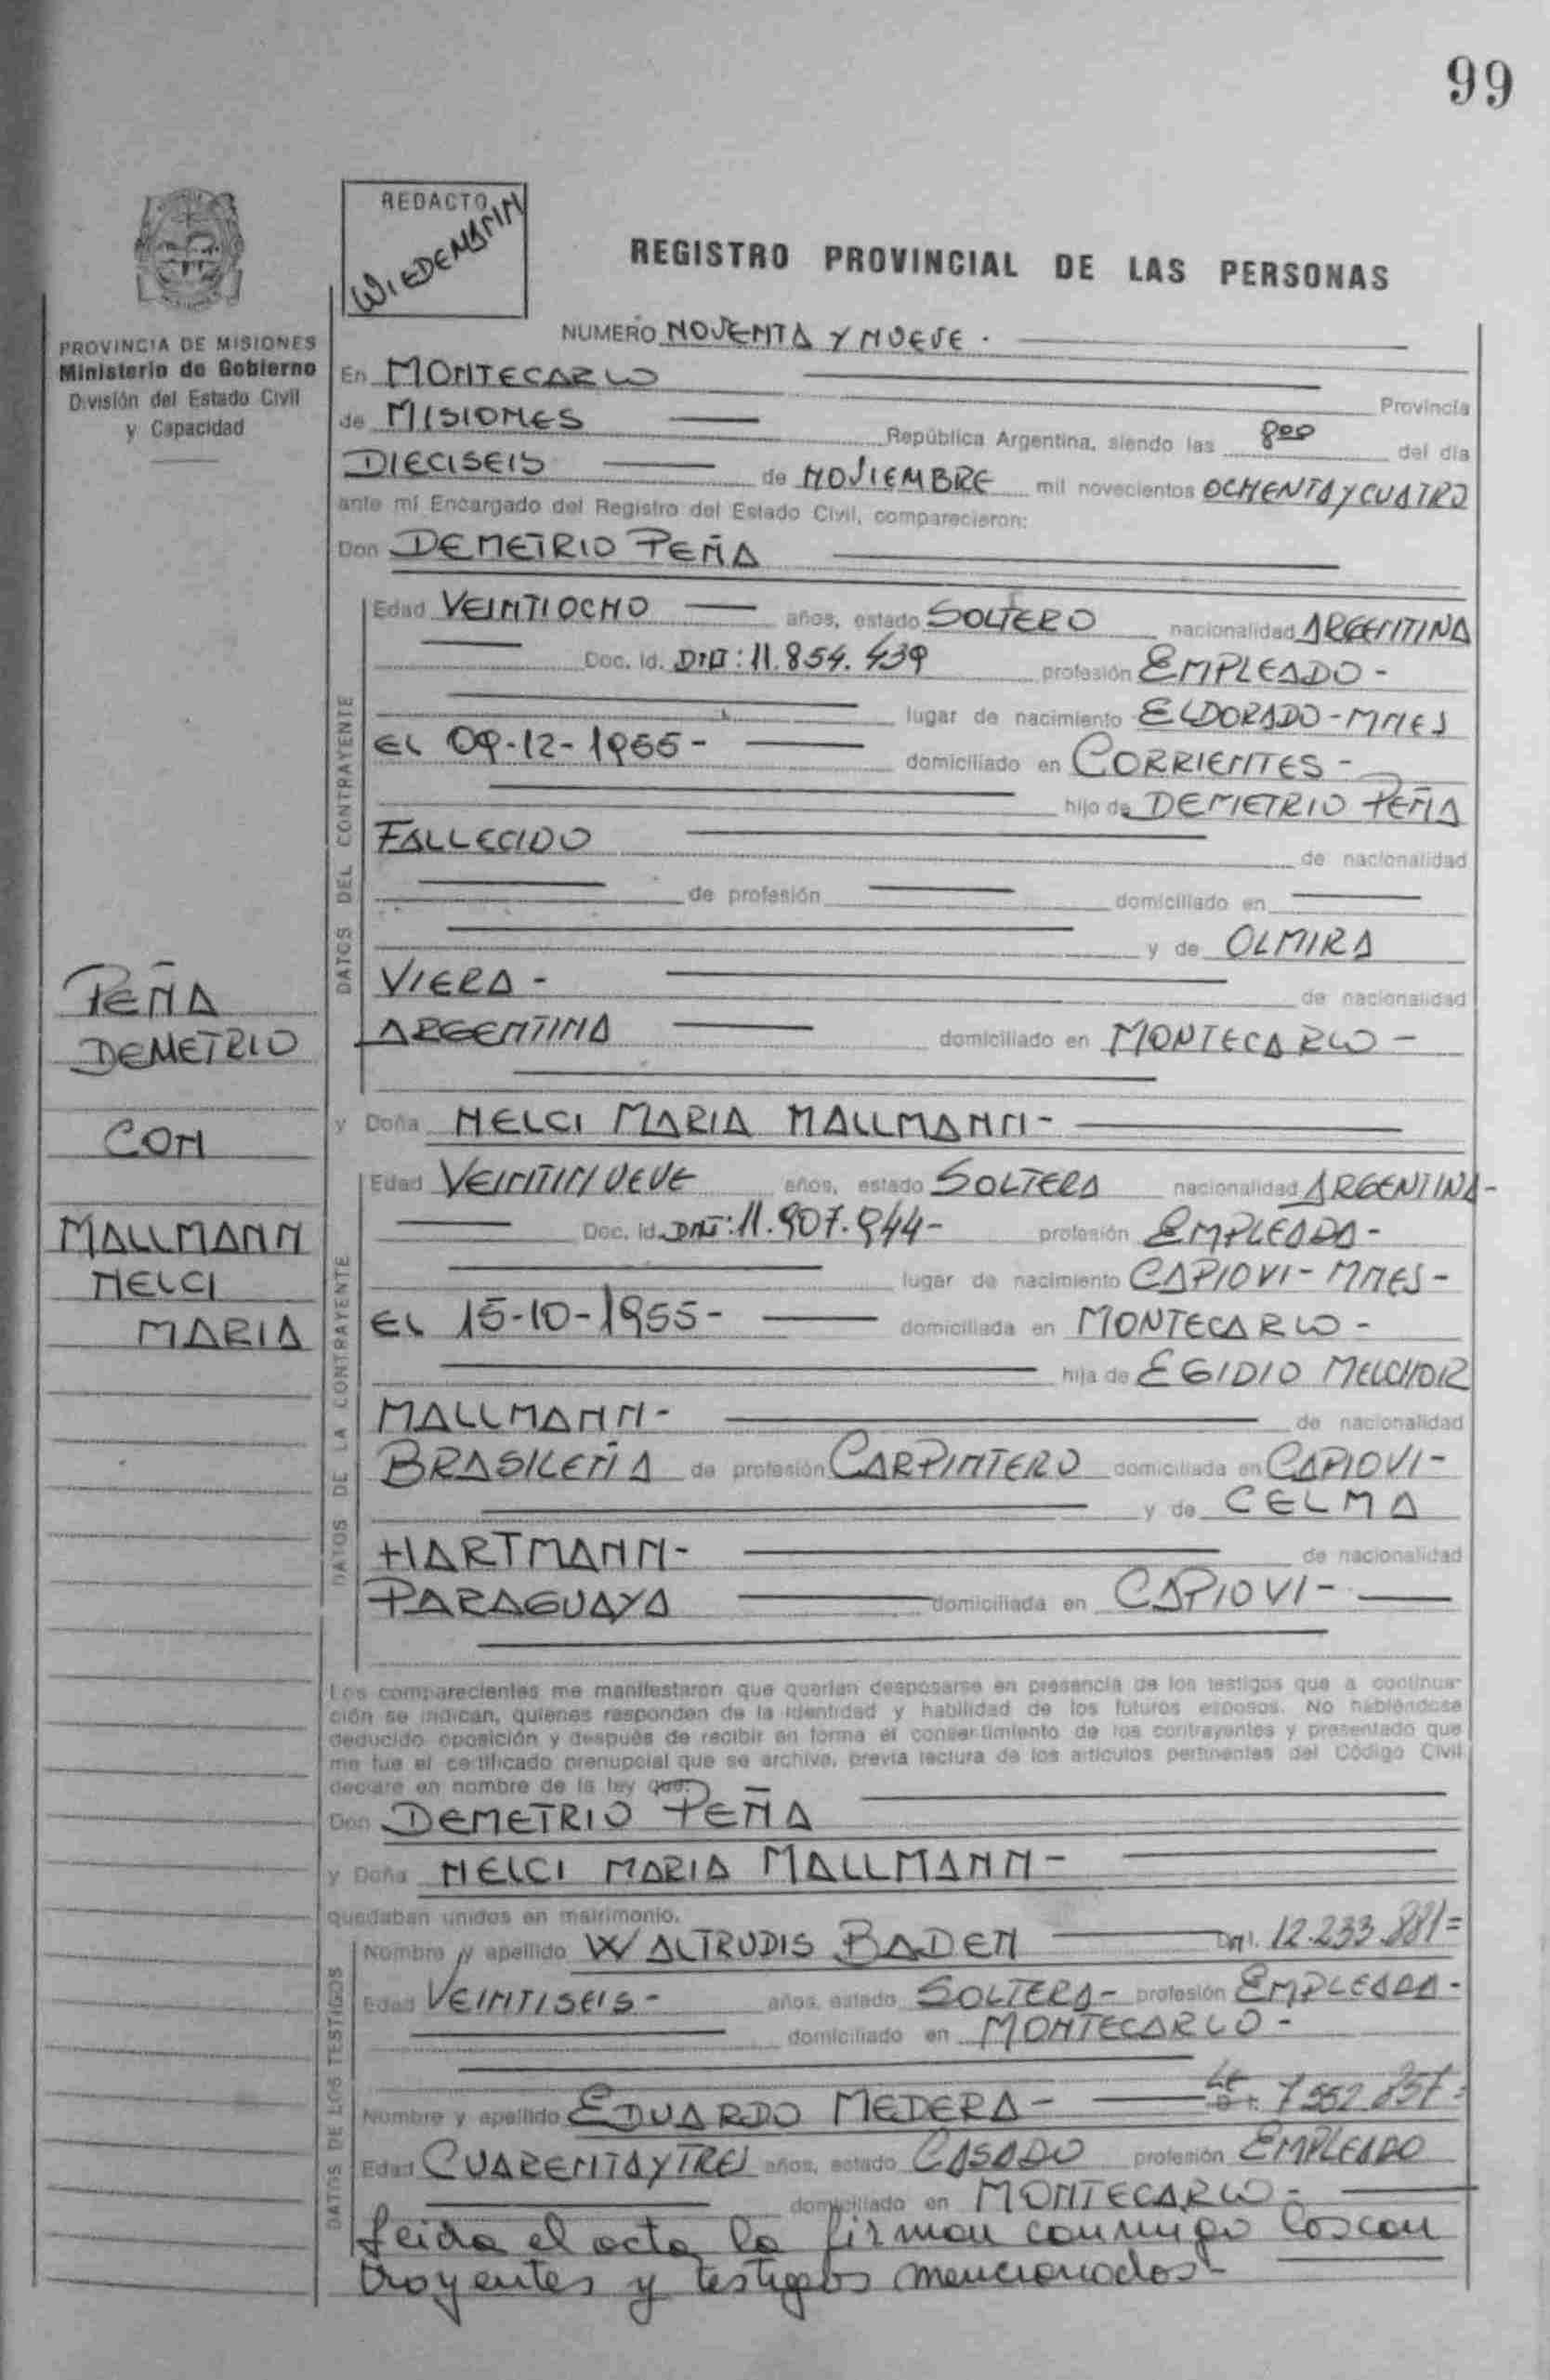 99
REDACTO
WIEDEMANN
REGISTRO PROVINCIAL DE LAS PERSONAS
PROVINCIA DE MISIONES
Ministerio de Gobierno
División del Estado Civil
y Capacidad
NUMERO NOVENTA Y NUEVE.
En MONTECARLO
Provincia
de MISIONES República Argentina, siendo las 8 00 del día
DIECISEIS de NOVIEMBRE mil novecientos OCHENTA Y CUATRO
ante mí Encargado del Registro del Estado Civil, comparecieron:
Don DEMETRIO PEÑA
DATOS DEL CONTRAYENTE
Edad VEINTIOCHO años, estado SOLTERO nacionalidad ARGENTINA
Doc. Id. DNI: 11.854.439 profesión EMPLEADO -
lugar de nacimiento ELDORADO - MNES
EL 09-12-1955 - domiciliado en CORRIENTES -
hijo de DEMETRIO PEÑA
FALLECIDO de nacionalidad
de profesión domiciliado en
y de OLMIRA
VIERA - de nacionalidad
ARGENTINA domiciliado en MONTECARLO -
PEÑA
DEMETRIO
CON
MALLMANN
NELCI
MARIA
y Doña NELCI MARIA MALLMANN -
DATOS DE LA CONTRAYENTE
Edad VEINTINUEVE años, estado SOLTERA nacionalidad ARGENTINA -
Doc. Id. DNI: 11.907.944 - profesión EMPLEADA -
lugar de nacimiento CAPIOVI - MNES -
EL 15-10-1955 - domiciliada en MONTECARLO -
hija de EGIDIO MELCHOR
MALLMANN - de nacionalidad
BRASILEÑA de profesión CARPINTERO domiciliada en CAPIOVI -
y de CELMA
HARTMANN - de nacionalidad
PARAGUAYA domiciliada en CAPIOVI -
Los comparecientes me manifestaron que querían desposarse en presencia de los testigos que a continua-
ción se indican, quienes responden de la identidad y habilidad de los futuros esposos. No habiéndose
deducido oposición y después de recibir en forma el consentimiento de los contrayentes y presentado que
me fue el certificado prenupcial que se archiva, previa lectura de los artículos pertinentes del Código Civil
declaré en nombre de la ley que:
Don DEMETRIO PEÑA
y Doña NELCI MARIA MALLMANN -
quedaban unidos en matrimonio.
DATOS DE LOS TESTIGOS
Nombre y apellido WALTRUDIS BADEN DNI. 12.233.881=
Edad VEINTISEIS - años, estado SOLTERA - profesión EMPLEADA -
domiciliado en MONTECARLO -
Nombre y apellido EDUARDO MEDERA - LE
Edad CUARENTA Y TRES años, estado CASADO profesión EMPLEADO
domiciliado en MONTECARLO -
Leida el acta la firman conmigo los con
trayentes y testigos mencionados -